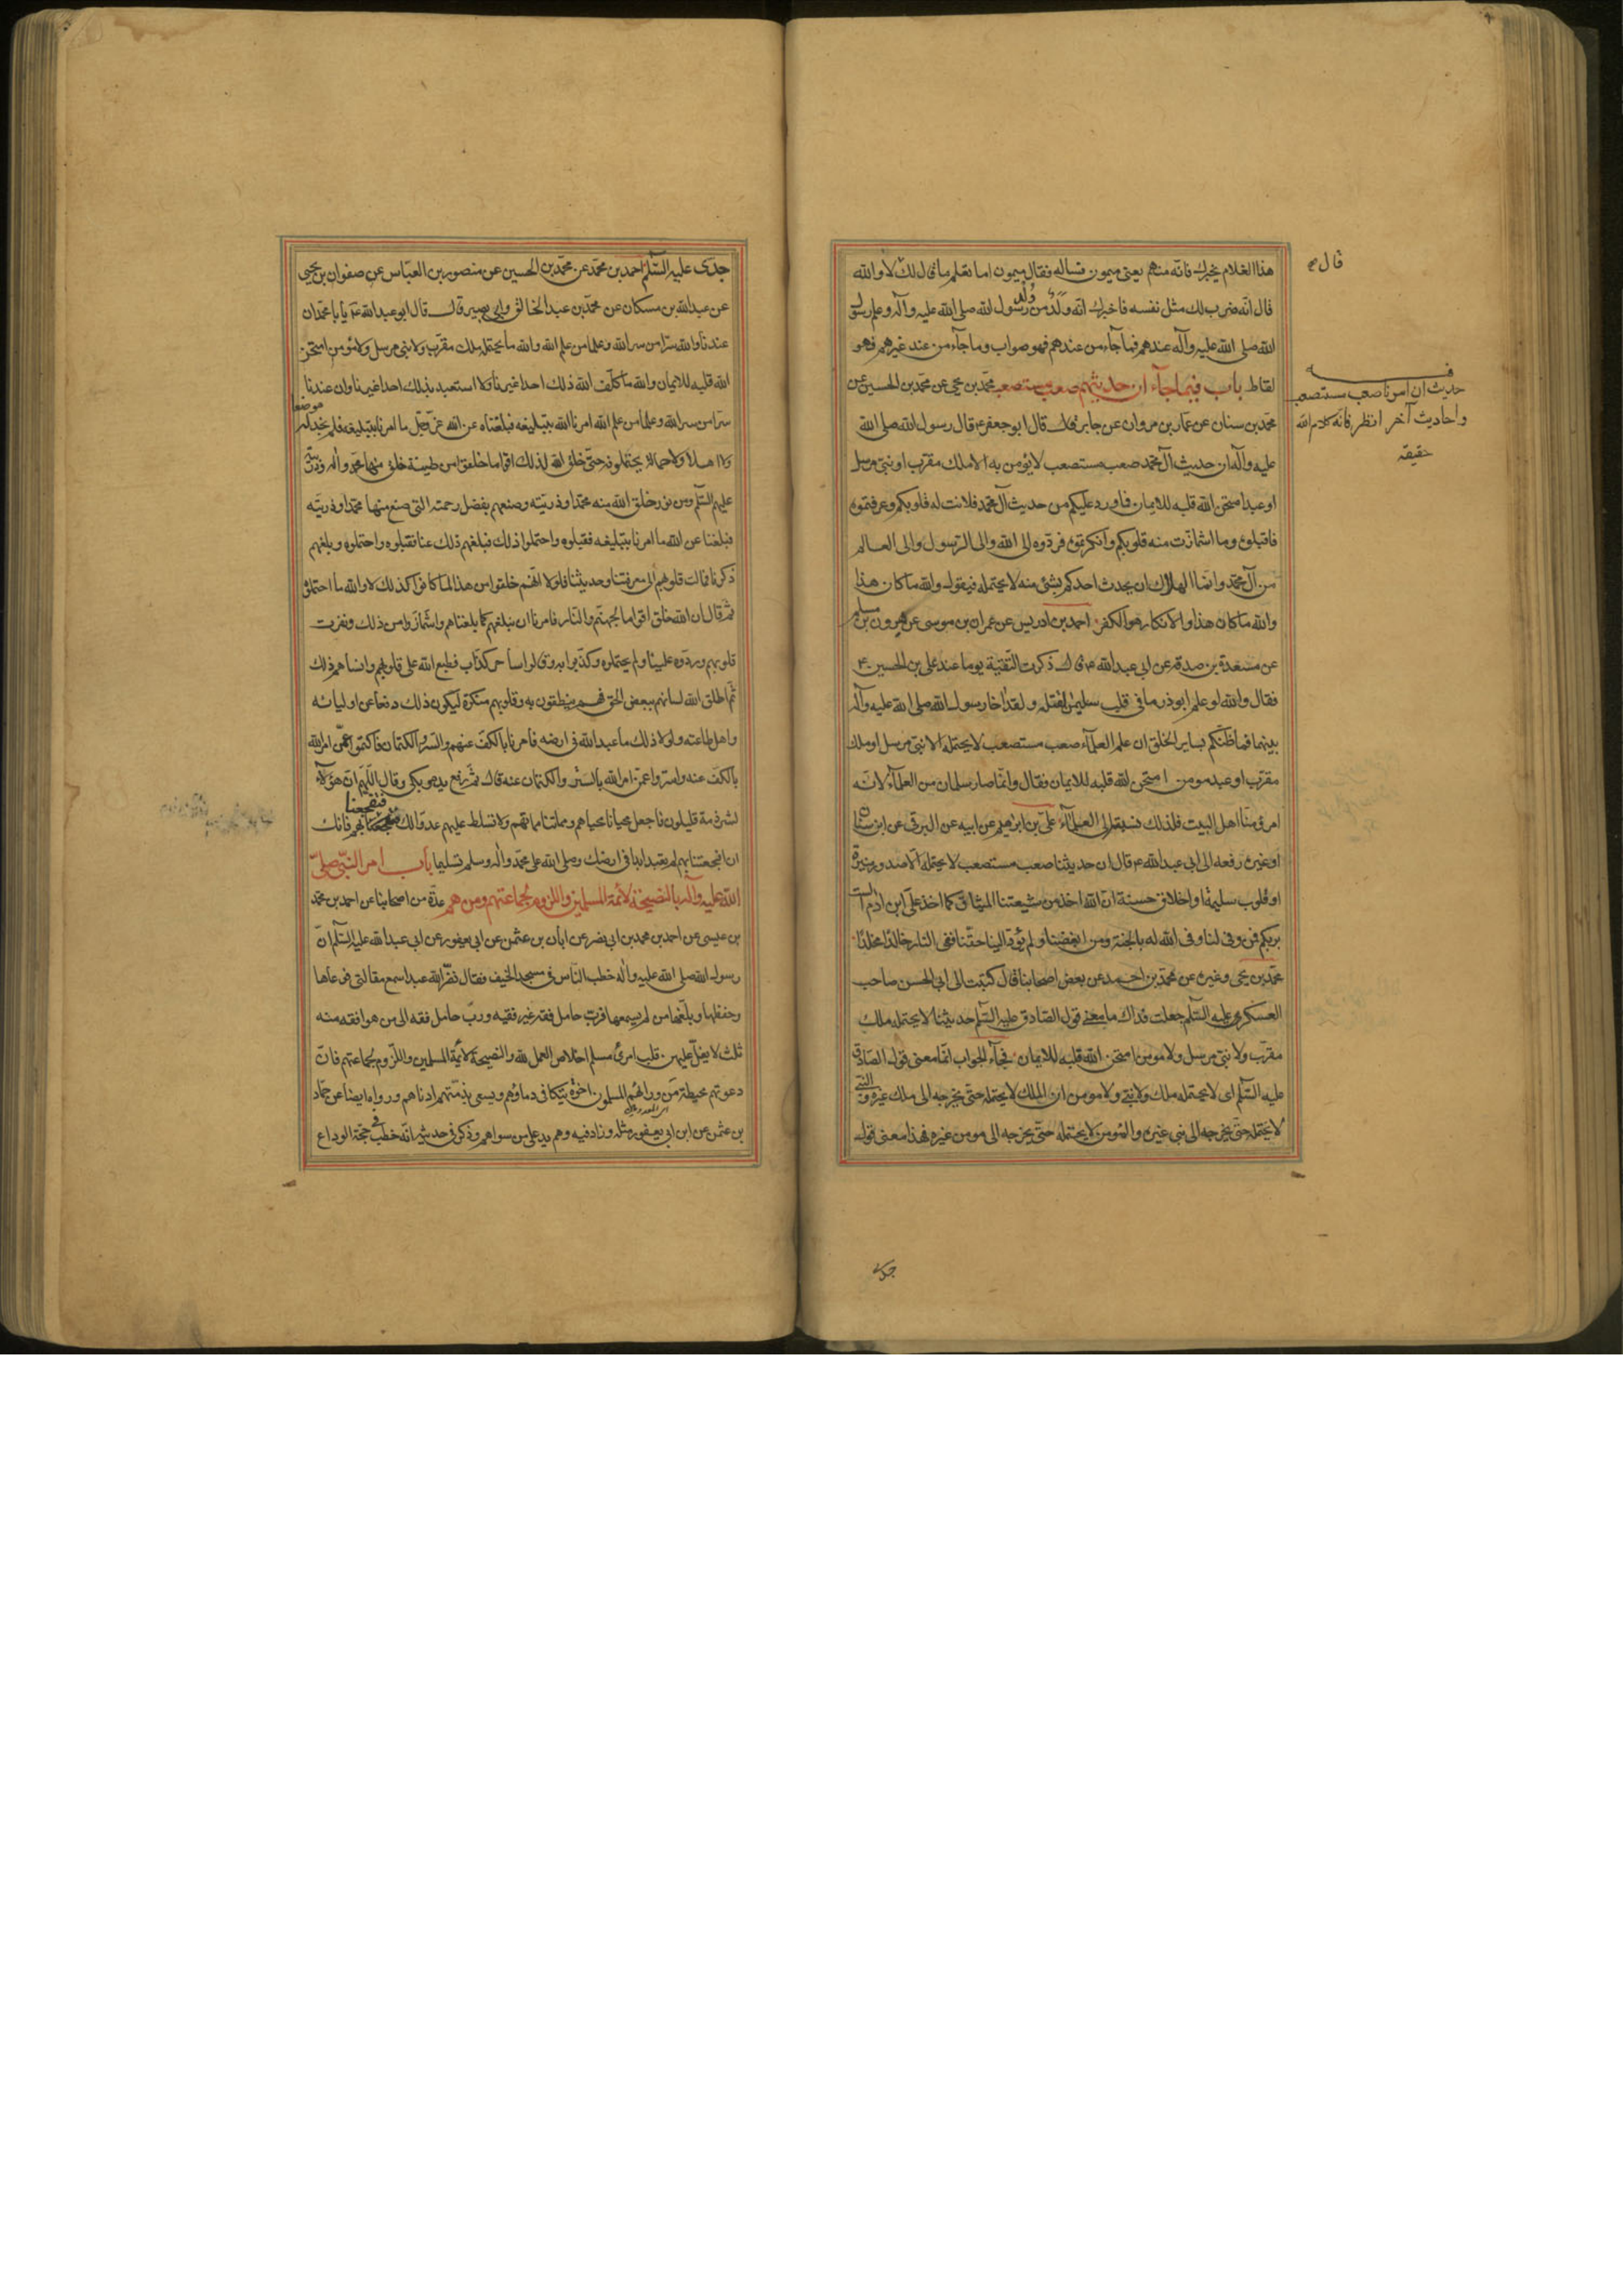 هذا الغلام يخبرك فانه منهم يعنى ميمون فساله فقال ميمون اما تعلم ما قال لك لا والله
قال انه ضرب لك مثل نفسه فاخبرك انه ولد من رسول الله صلى الله عليه وآله وعلم رسول
الله صلى الله عليه وآله عندهم فما جآء من عندهم فهو صواب وما جآء من عند غيرهم فهو
لقاط باب فيما جآء ان حديثهم صعب مستصعب محمد بن يحيى عن محمد بن الحسين عن
محمد بن سنان عن عمار بن مروان عن جابر قال قال ابو جعفر ع قال رسول الله صلى الله
عليه وآله ان حديث آل محمد صعب مستصعب لا يؤمن به الا ملك مقرب او نبى مرسل
او عبد امتحن الله قلبه للايمان فما ورد عليكم من حديث آل محمد فلانت له قلوبكم وعرفتموه
فاقبلوه وما اشمازت منه قلوبكم وانكرتموه فردوه الى الله والى الرسول والى العالم
من آل محمد وانما الهلاك ان يحدث احدكم بشئ منه لا يحتمله فيقول والله ما كان هذا
والله ما كان هذا والانكار هو الكفر احمد بن ادريس عن عمران بن موسى عن هرون بن مسلم
عن مسعدة بن صدقة عن ابى عبد الله ع قال ذكرت التقية يوما عند على بن الحسين ع
فقال والله لو علم ابوذر ما فى قلب سلمان لقتله ولقد اخا رسول الله صلى الله عليه وآله
بينهما فما ظنكم بساير الخلق ان علم العلمآء صعب مستصعب لا يحتمله الا نبى مرسل او ملك
مقرب او عبد مومن امتحن الله قلبه للايمان فقال وانما صار سلمان من العلمآء لانه
امرؤ منا اهل البيت فلذلك نسبته الى العلمآء على بن ابراهيم عن ابيه عن البرقى عن ابن سنان
او غيره رفعه الى ابى عبد الله ع قال ان حديثنا صعب مستصعب لا يحتمله الا صدور منيرة
او قلوب سليمة او اخلاق حسنة ان الله اخذ من شيعتنا الميثاق كما اخذ على ابن ادم الست
بربكم فمن وفى لنا وفى الله له بالجنة ومن ابغضنا ولم يؤد الينا حقنا ففى النار خالدا مخلدا
محمد بن يحيى وغيره عن محمد بن احمد عن بعض اصحابنا قال كتبت الى ابى الحسن صاحب
العسكر عليه السلم جعلت فداك ما معنى قول الصادق عليه السلم حديثنا لا يحتمله ملك
مقرب ولا نبى مرسل ولا مومن امتحن الله قلبه للايمان فجآء الجواب انما معنى قول الصادق
عليه السلم اى لا يحتمله ملك ولا نبى ولا مومن ان الملك لا يحتمله حتى يخرجه الى ملك غيره والنبى
لا يحتمله حتى يخرجه الى نبى غيره والمؤمن لا يحتمله حتى يخرجه الى مومن غيره فهذا معنى قول
قال
حديث ان امرنا صعب مستصعب
واحاديث آخر انظر فانه كلام الله
حقيقه
جدى
جدى عليه السلم احمد بن محمد عن محمد بن الحسين عن منصور بن العباس عن صفوان بن يحيى
عن عبد الله بن مسكان عن محمد بن عبد الخالق وابى بصير قال قال ابو عبد الله ع يا با محمد ان
عندنا والله سرا من سر الله وعلما من علم الله والله ما يحتمله ملك مقرب ولا نبى مرسل ولا مؤمن امتحن
الله قلبه للايمان والله ما كلف الله ذلك احدا غيرنا ولا استعبد بذلك احدا غيرنا وان عندنا
سرا من سر الله وعلما من علم الله امرنا الله بتبليغه فبلغناه عن الله عز وجل ما امرنا بتبليغه فلم نجد له موضعا
ولا اهلا ولا حمالة يحتملونه حتى خلق الله لذلك اقواما خلقوا من طينة خلق منها محمد وآله وذريته
عليهم السلم ومن نور خلق الله منه محمدا وذريته وصنعهم بفضل رحمته التى صنع منها محمدا وذريته
فبلغنا عن الله ما امرنا بتبليغه فقبلوه واحتملوا ذلك فبلغهم ذلك عنا فقبلوه واحتملوه وبلغهم
ذكرنا فمالت قلوبهم الى معرفتنا وحديثنا فلولا انهم خلقوا من هذا لما كانوا كذلك لا والله ما احتملوه
ثم قال ان الله خلق اقواما لجهنم والنار فامرنا ان نبلغهم كما بلغناهم واشمازوا من ذلك ونفرت
قلوبهم وردوه علينا ولم يحتملوه وكذبوا به وقالوا ساحر كذاب فطبع الله على قلوبهم وانساهم ذلك
ثم اطلق الله لسانهم ببعض الحق فهم ينطقون به وقلوبهم منكرة ليكون ذلك دفعا عن اوليائه
واهل طاعته ولولا ذلك ما عبد الله فى ارضه فامرنا بالكف عنهم والستر والكتمان فاكتموا عمن امر الله
بالكف عنه واستروا عمن امر الله بالستر والكتمان عنه قال ثم رفع يده وبكى وقال اللهم ان هؤلآء
لشرذمة قليلون فاجعل محيانا محياهم ومماتنا مماتهم ولا تسلط عليهم عدوا لك فتفجعنا بهم فانك
ان افجعتنا بهم لم تعبد ابدا فى ارضك وصلى الله على محمد وآله وسلم تسليما باب امر النبى صلى
الله عليه وآله بالنصيحة لأئمة المسلمين واللزوم لجماعتهم ومن هم عدة من اصحابنا عن احمد بن محمد
بن عيسى عن احمد بن محمد بن ابى نصر عن ابان بن عثمن عن ابى يعفور عن ابى عبد الله عليه السلم ان
رسول الله صلى الله عليه وآله خطب الناس فى مسجد الخيف فقال نضر الله عبدا سمع مقالتى فوعاها
وحفظها وبلغها من لم يسمعها فرب حامل فقه غير فقيه ورب حامل فقه الى من هو افقه منه
ثلث لا يغل عليهن قلب امرئ مسلم اخلاص العمل لله والنصيحة لائمة المسلمين واللزوم لجماعتهم فان
دعوتهم محيطة من ورائهم المسلمون اخوة يتكافى دماؤهم ويسعى بذمتهم ادناهم ورواه ايضا عن حماد
بن عثمن عن ابان عن ابن ابى يعفور مثله وزاد فيه وهم يد على من سواهم وذكر فى حديثه انه خطب فى حجة الوداع